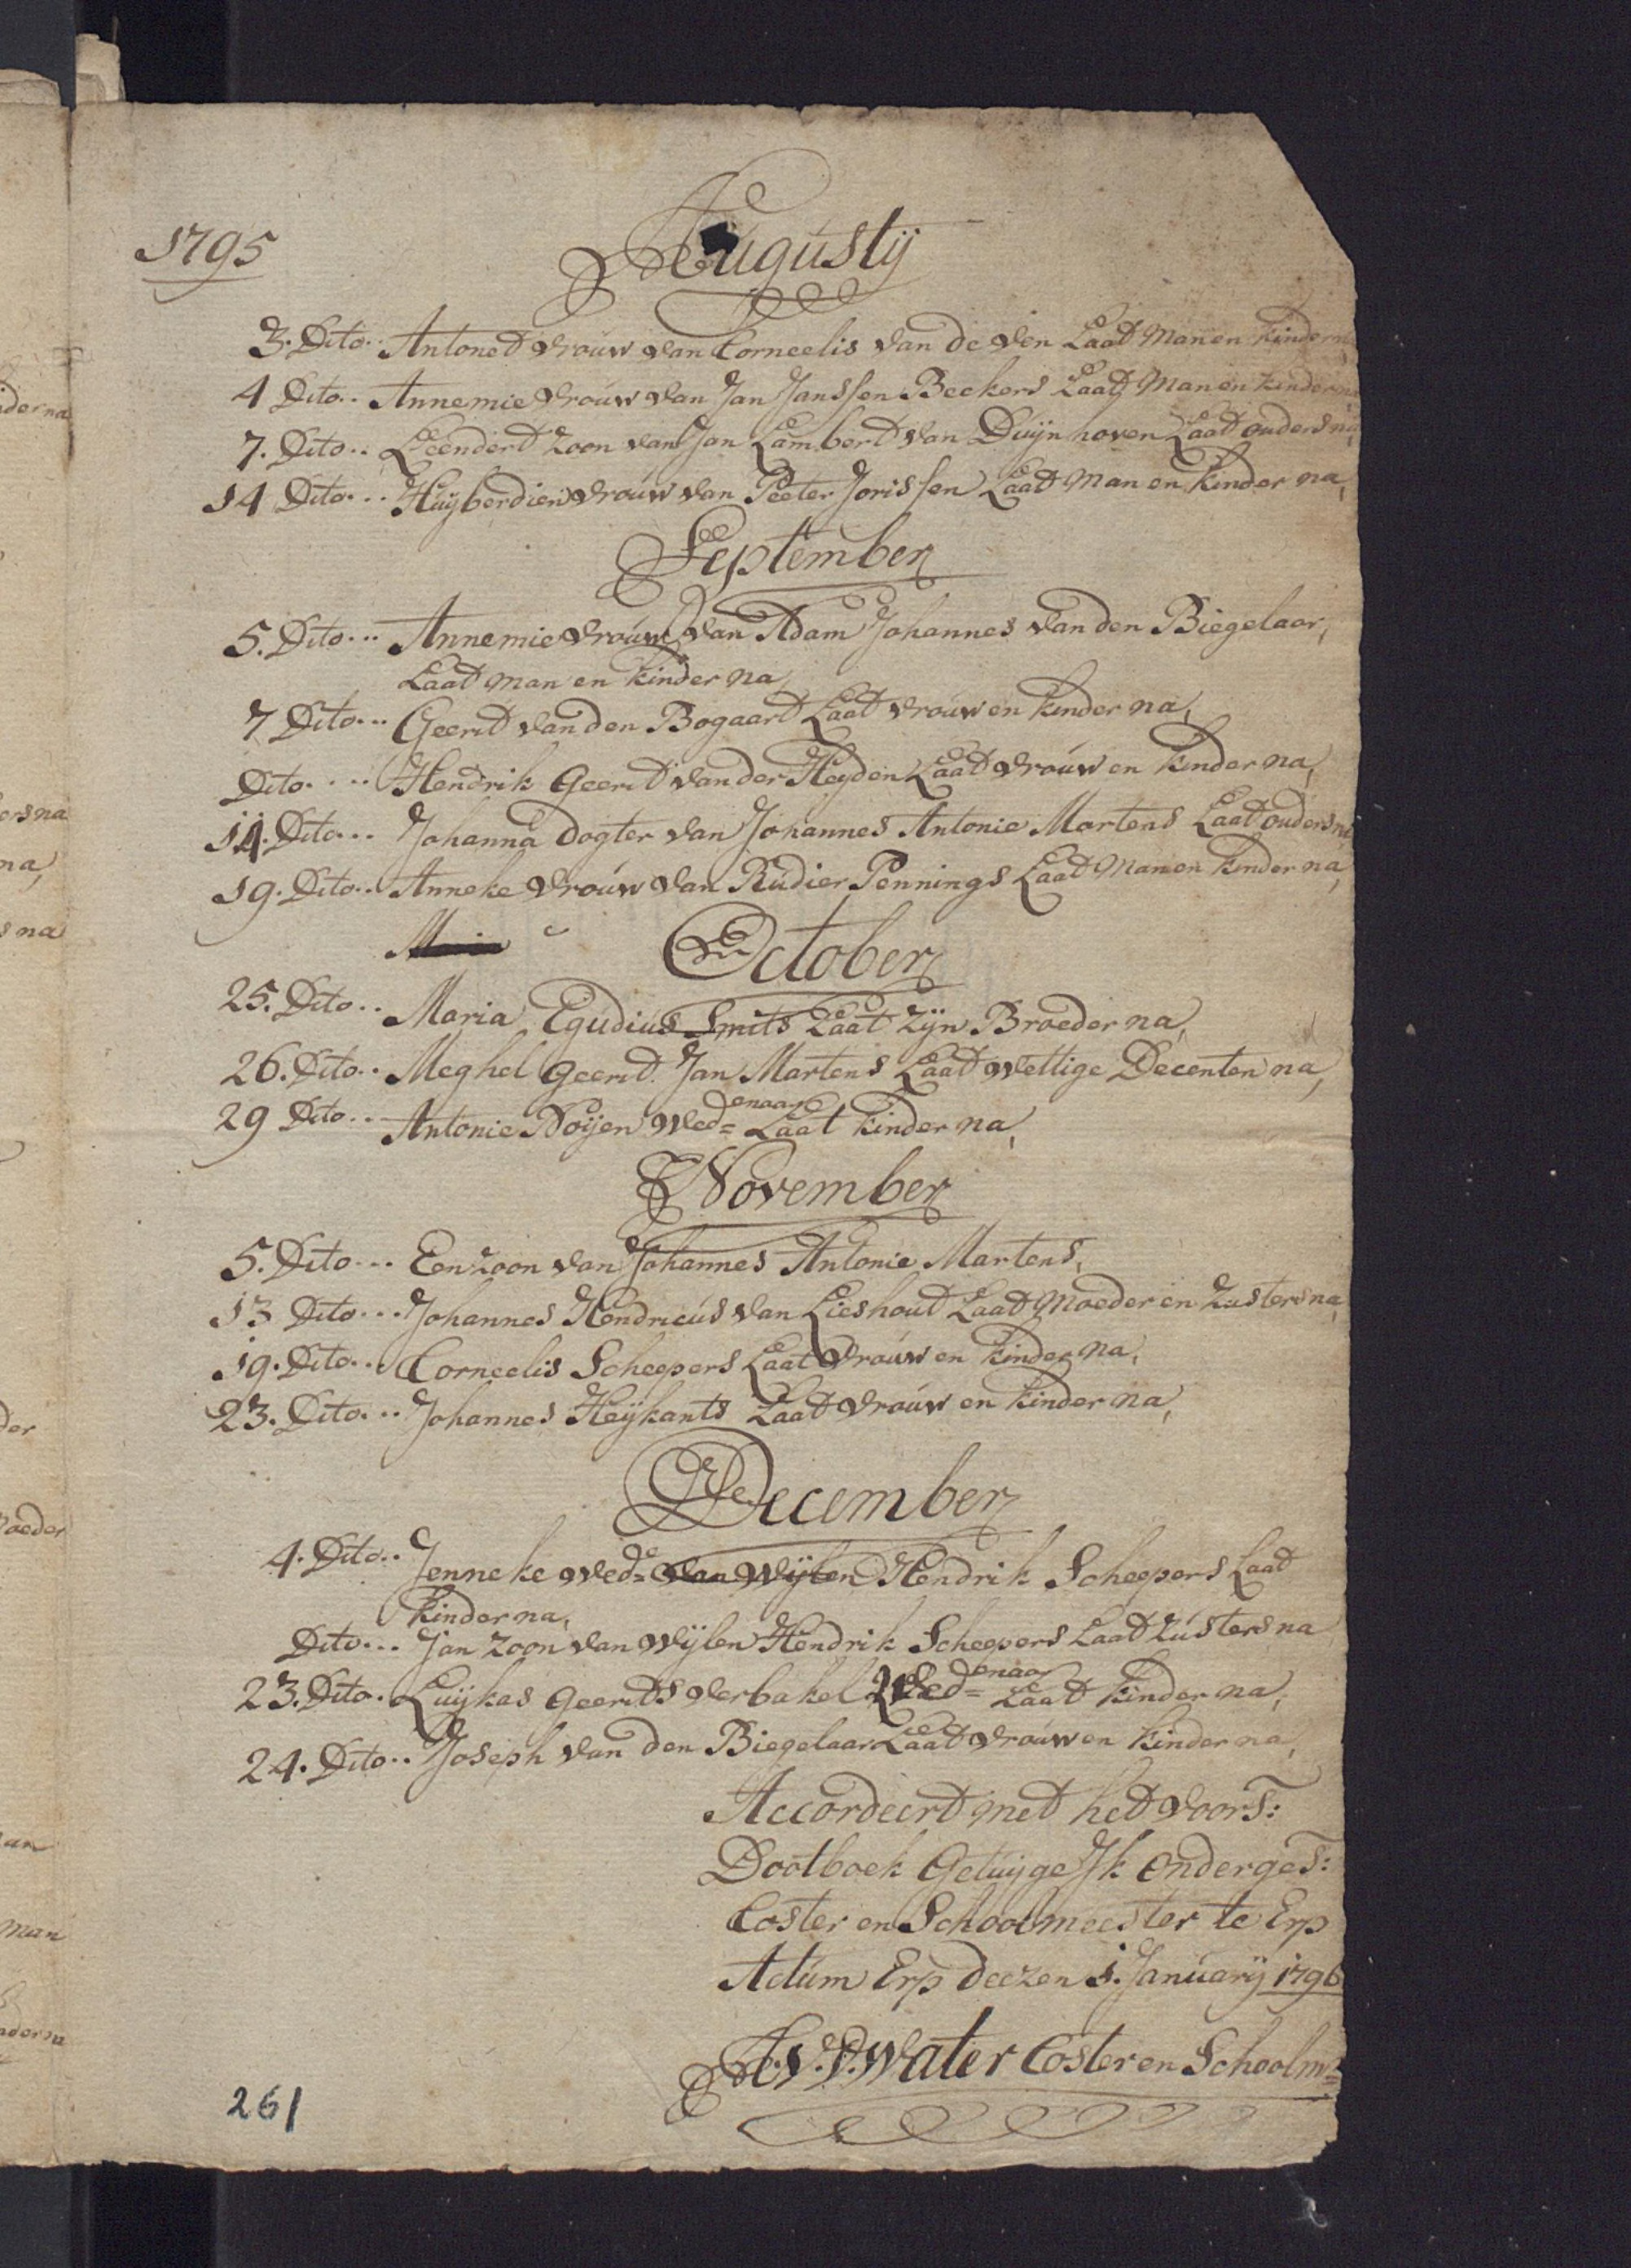 1795
Augustij
3. Dito.. Antonet vrouw van Corneelis van de Ven Laat Man en kinder na
4 Dito.. Annemie vrouw van Jan Janssen Beekers Laat Man en kinder na
7. Dito.. Leendert zoon van Jan Lambert van Duijnhoven Laat ouders na,
14 Dito... Huijberdien vrouw van Peeter Jorissen Laat Man en kinder na,
September
5. Dito... Annemie vrouw van Adam Johannes van den Biegelaar,
Laat man en kinder na,
7 Dito... Geerit van den Bogaart Laat vrouw en kinder na,
Dito.... Hendrik Geerit van der Heyden Laat vrouw en kinder na,
14. Dito... Johanna dogter van Johannes Antonie Martens Laat ouders na
19. Dito.. Anneke vrouw van Rudier Pennings Laat Man en kinder na,
October
25. Dito.. Maria Egudius Smits Laat zijn Broeder na,
26. Dito.. Meghel Geerit Jan Martens Laat wettige Decenten na,
29 Dito.. Antonie Noijen Wed=enaar Laat kinder na,
November
5. Dito... Een zoon van Johannes Antonie Martens,
13 Dito... Johannes Hendricus van Lieshout Laat Moeder en Zusters na,
19. Dito... Corneelis Scheepers Laat vrouw en kinder na,
23. Dito... Johannes Heijkants Laat vrouw en kinder na,
December
4. Dito.. Jenneke Wed=e van Wijlen Hendrik Scheepers Laat
kinder na,
Dito... Jan zoon van Wijlen Hendrik Scheepers Laat Zusters na
23. Dito. Luijkas Geerits Verbakel Wed=enaar Laat kinder na,
24. Dito.. Joseph van den Biegelaar Laat vrouw en kinder na,
Accordeert met het voors:
Dootboek Getuijge Ik onderges:
Coster en Schoolmeester te Erp
Actum Erp deezen 1. Januarij 1796
A. V. D. Water Coster en Schoolm=
261